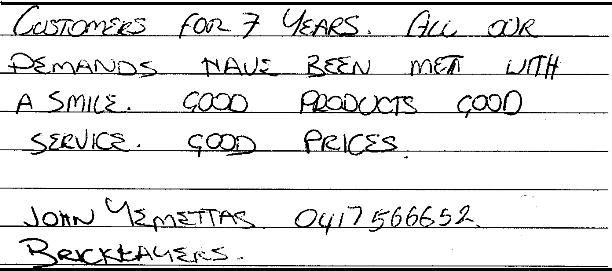 CUSTOMERS FOR 7 YEARS. ALL OUR
DEMANDS HAVE BEEN MET WITH
A SMILE. GOOD PRODUCTS GOOD
SERVICE. GOOD PRICES.
JOHN YEMETTAS 0417566652.
BRICKLAYERS.